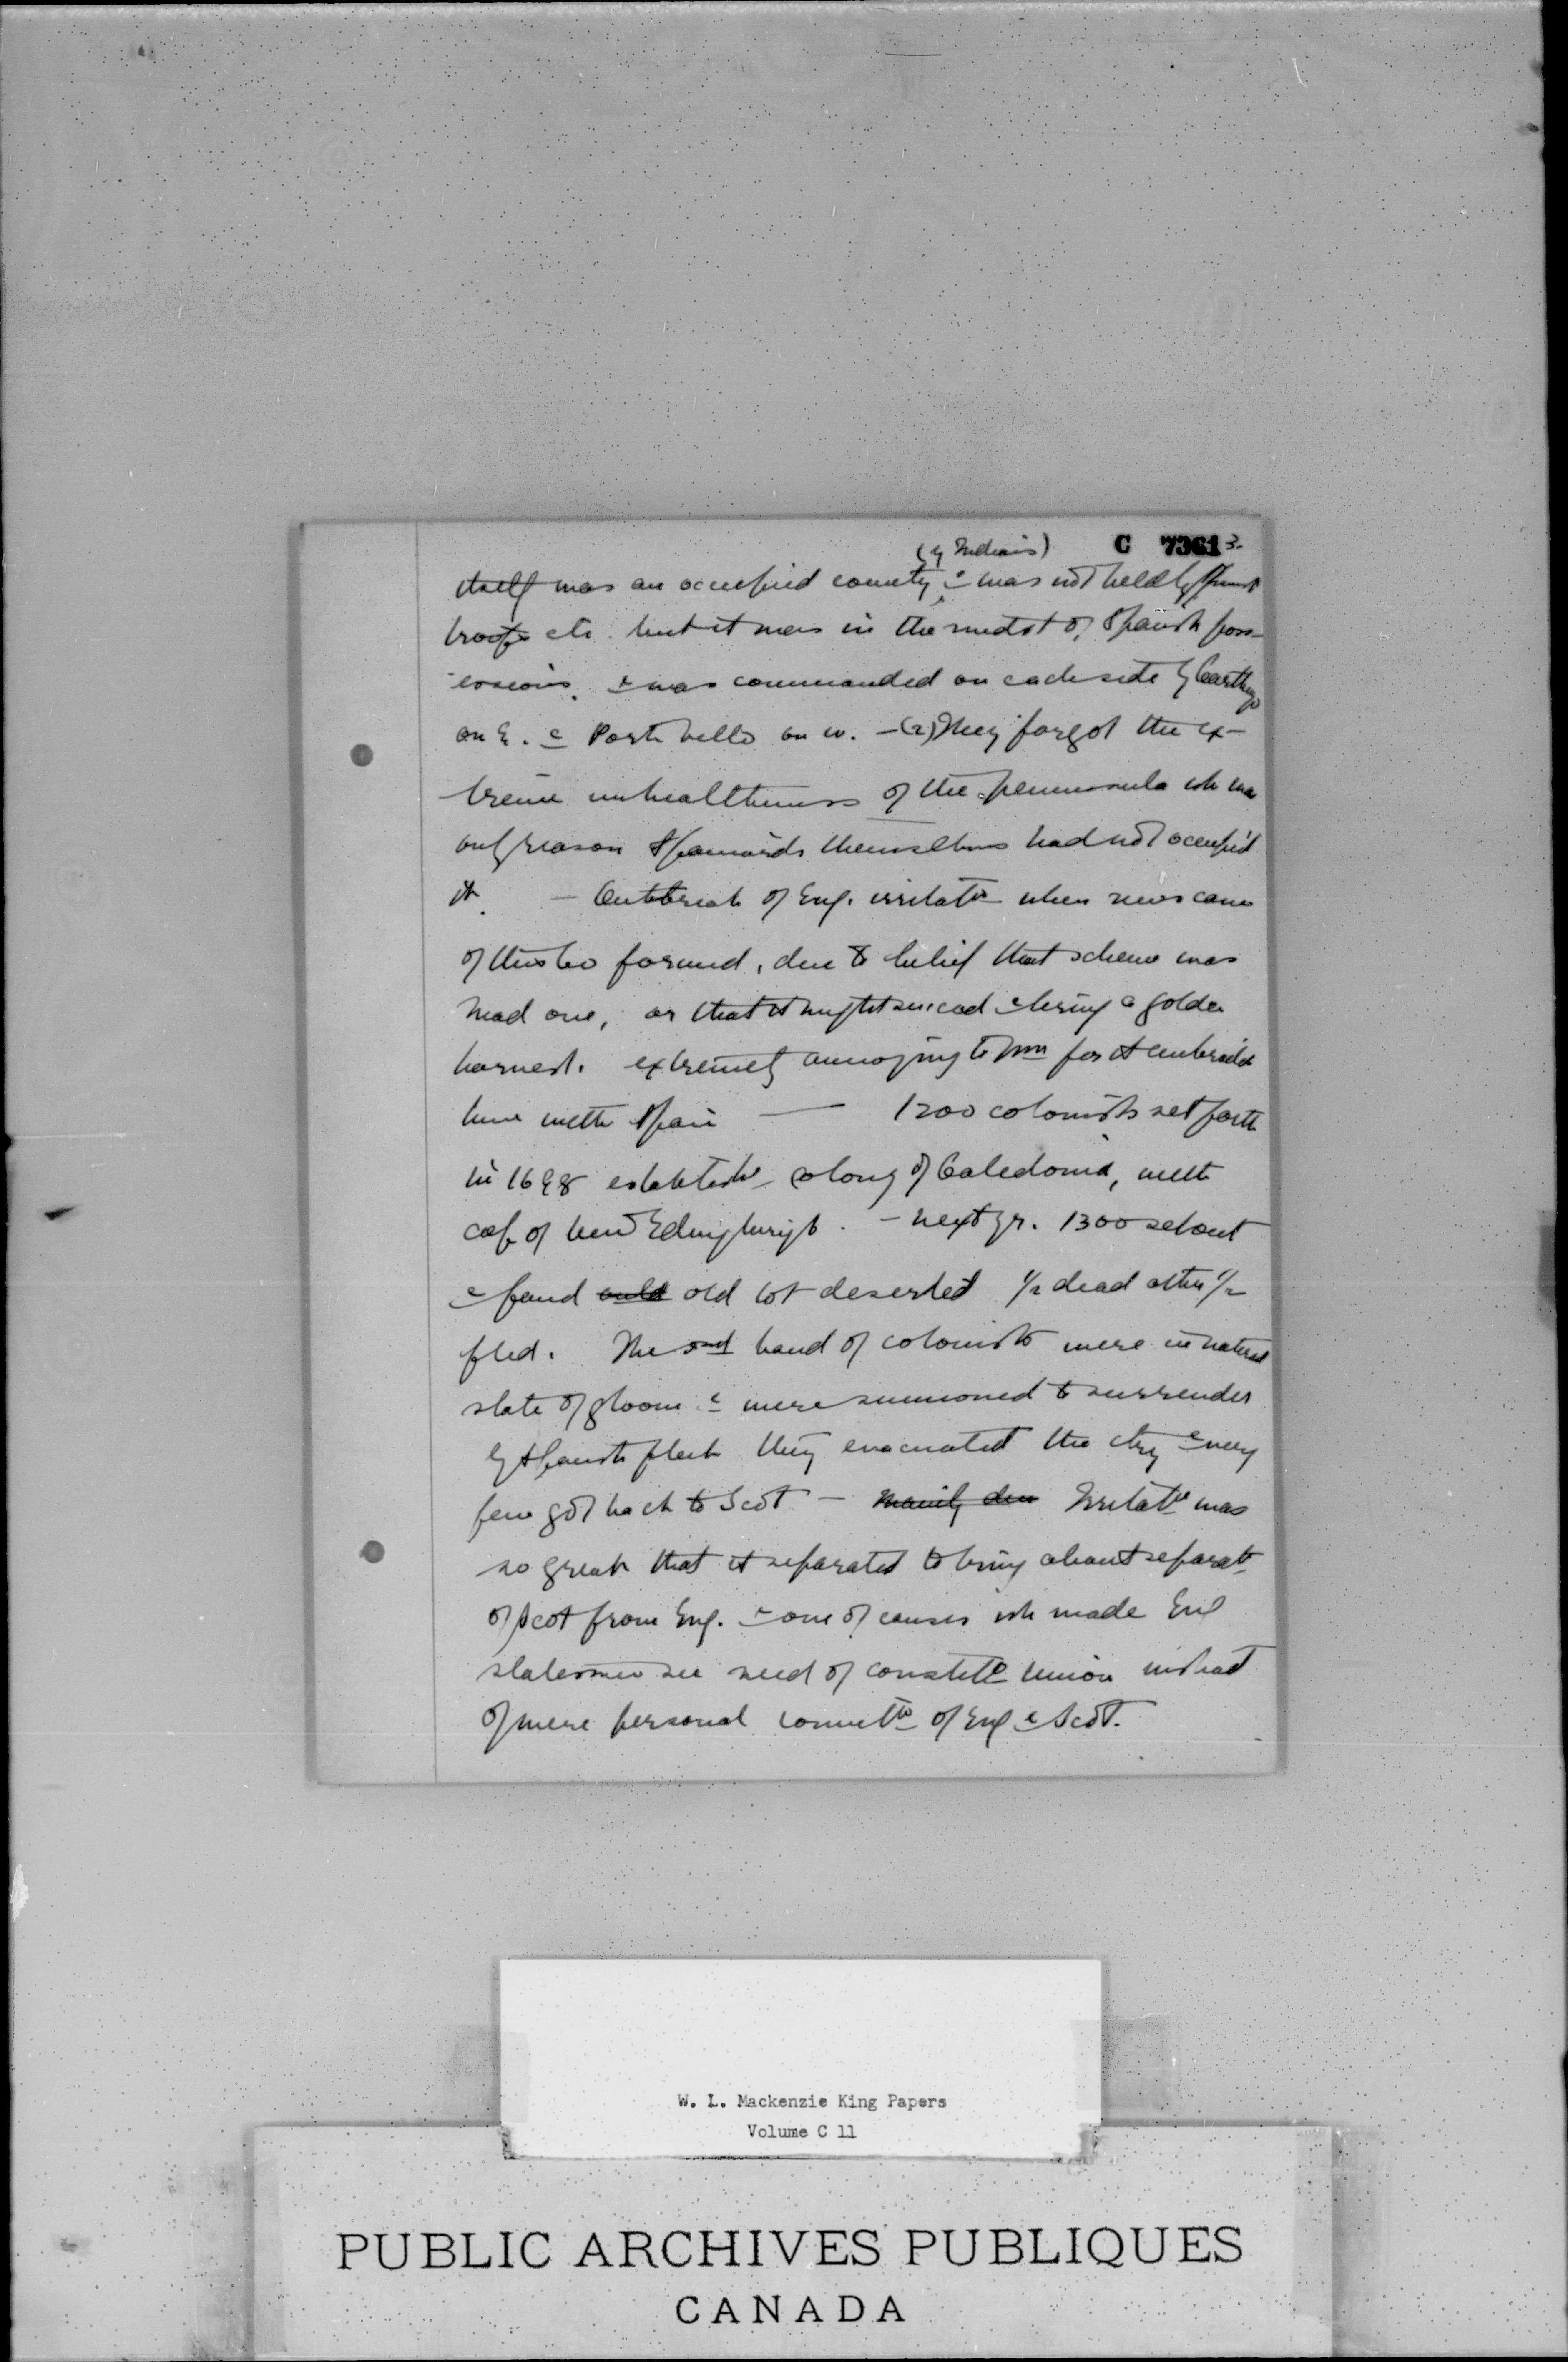 (by Indians) C 7361 3.
itself was an occupied country & was not held by Spanish
troops etc. but it was in the midst of Spanish poss-
essions, & was commanded on each side by Carthage
on E. & Porto bello on W. - (2) They forgot the ex-
treme unhealthiness of the peninsula wh was
only reason Spaniards themselves had not occupied
it. - Outbreak of Eng. irritatn when news came
of this Co formed, due to belief that scheme was
mad one, or that it might succeed & bring a golden
harvest. extremely annoying to Wm for it embroiled
him with Spain — 1200 colonists set forth
in 1698 establishd colony of Caledonia, with
cap of New Edingburgh. - next yr. 1300 set out
& found old lot deserted 1/2 dead other 1/2
fled. The 2nd band of colonists were in natural
state of gloom & were summoned to surrender
by Spanish fleet they evacuated the ctry & very
few got back to Scot - Mainly due Irritatn was
so great that it separated to bring about separatn
of Scot from Eng. & one of causes wh made Eng
statesmen see need of constitl union instead
of mere personal connectn of Eng & Scot.
W. L. Mackenzie King Papers
Volume C 11
PUBLIC ARCHIVES PUBLIQUES
CANADA